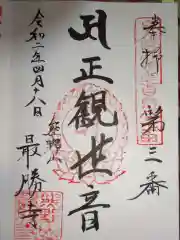 奉拝
第三番
正観世音
令和二年四月十八日
最勝寺